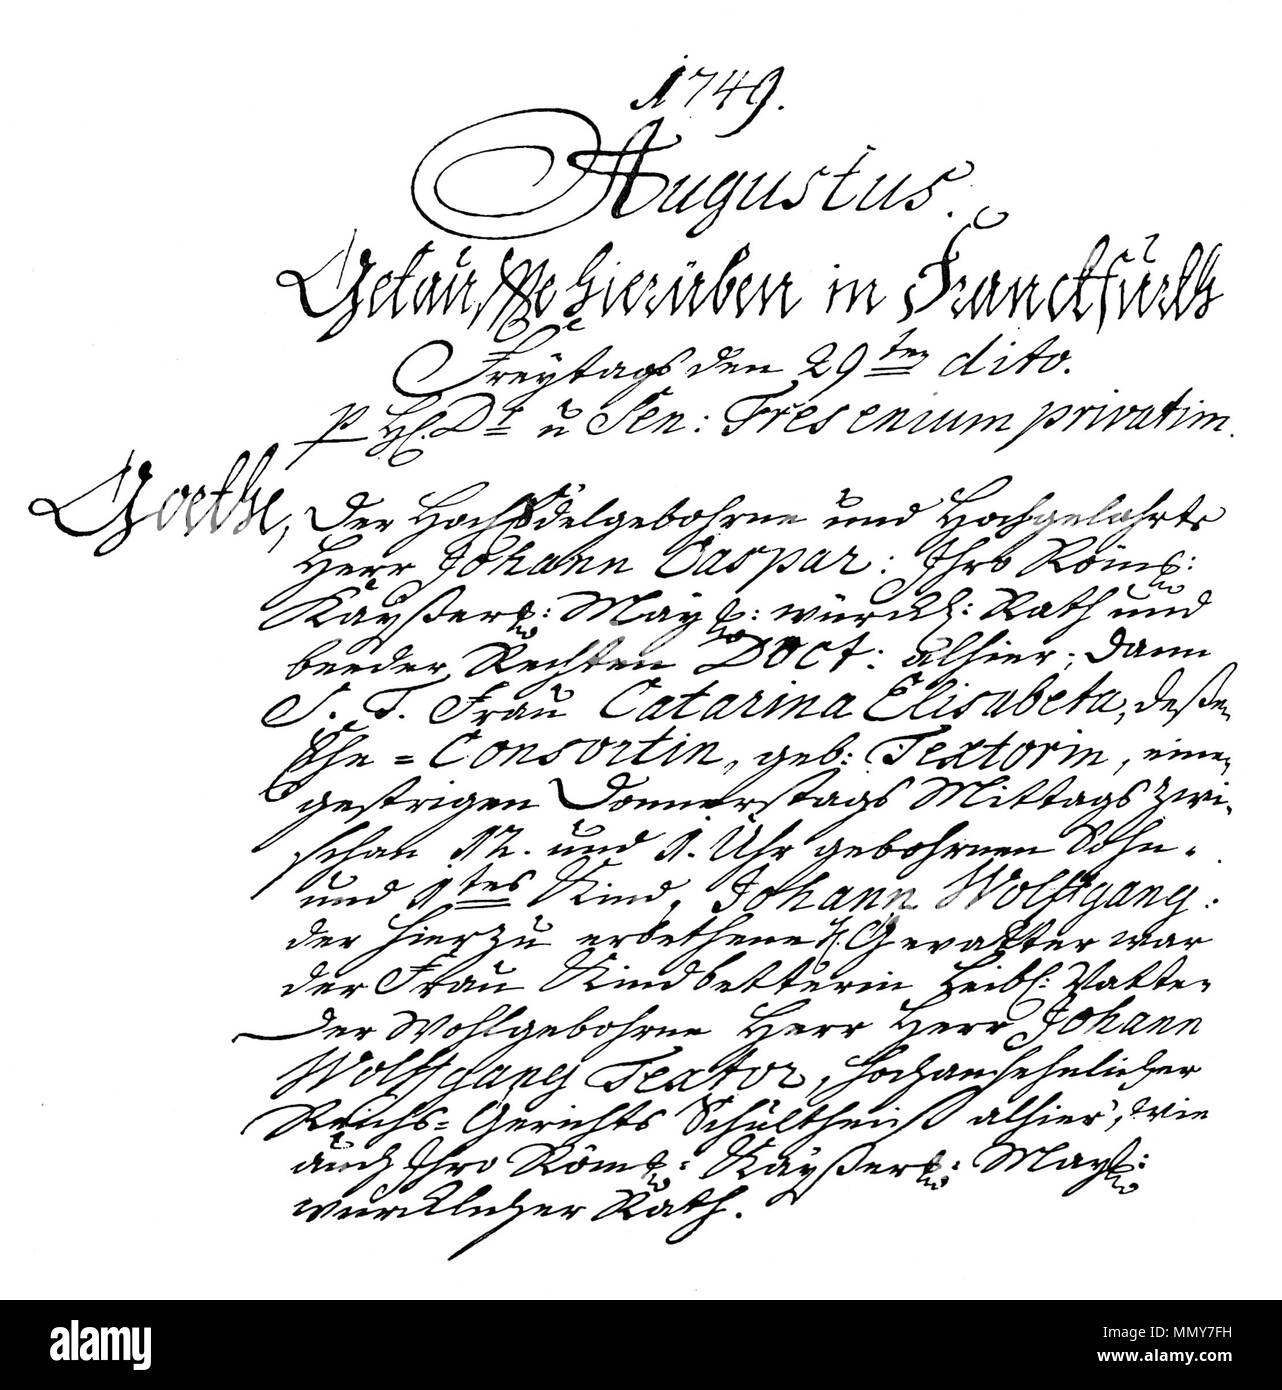 1749.
Augustus.
Getauffte hierüben in Franckfurth
Freytags den 29ten dito.
p. H. Dr u Sen: Fresenium privatim.
Goethe, Der HochEdelgebohrne und Hochgelahrte
Herr Johann Caspar: Ihro Röm:
Kayßer: May: würckl: Rath und
beeder Rechten Doct: alhier; dann
S. T. Frau Catarina Elisabeta, deßen
Ehe=Consortin, geb: Textorin, einen
gestrigen Donnerstags Mittags zwi-
schen 12. und 1. Uhr gebohrnen Sohn
und 1tes Kind, Johann Wolffgang:
der hierzu erbethene H. Gevatter war
der Frau Kindbetterin Leibl: Vatter
Der Wohlgebohrne Herr Herr Johann
Wolffgang Textor, Hochansehnlicher
Reichs=Gerichts Schultheiß alhier, wie
auch Ihro Röm: Kayßer: May:
würcklicher Rath.
alamy
Image ID: MMY7FH
www.alamy.com